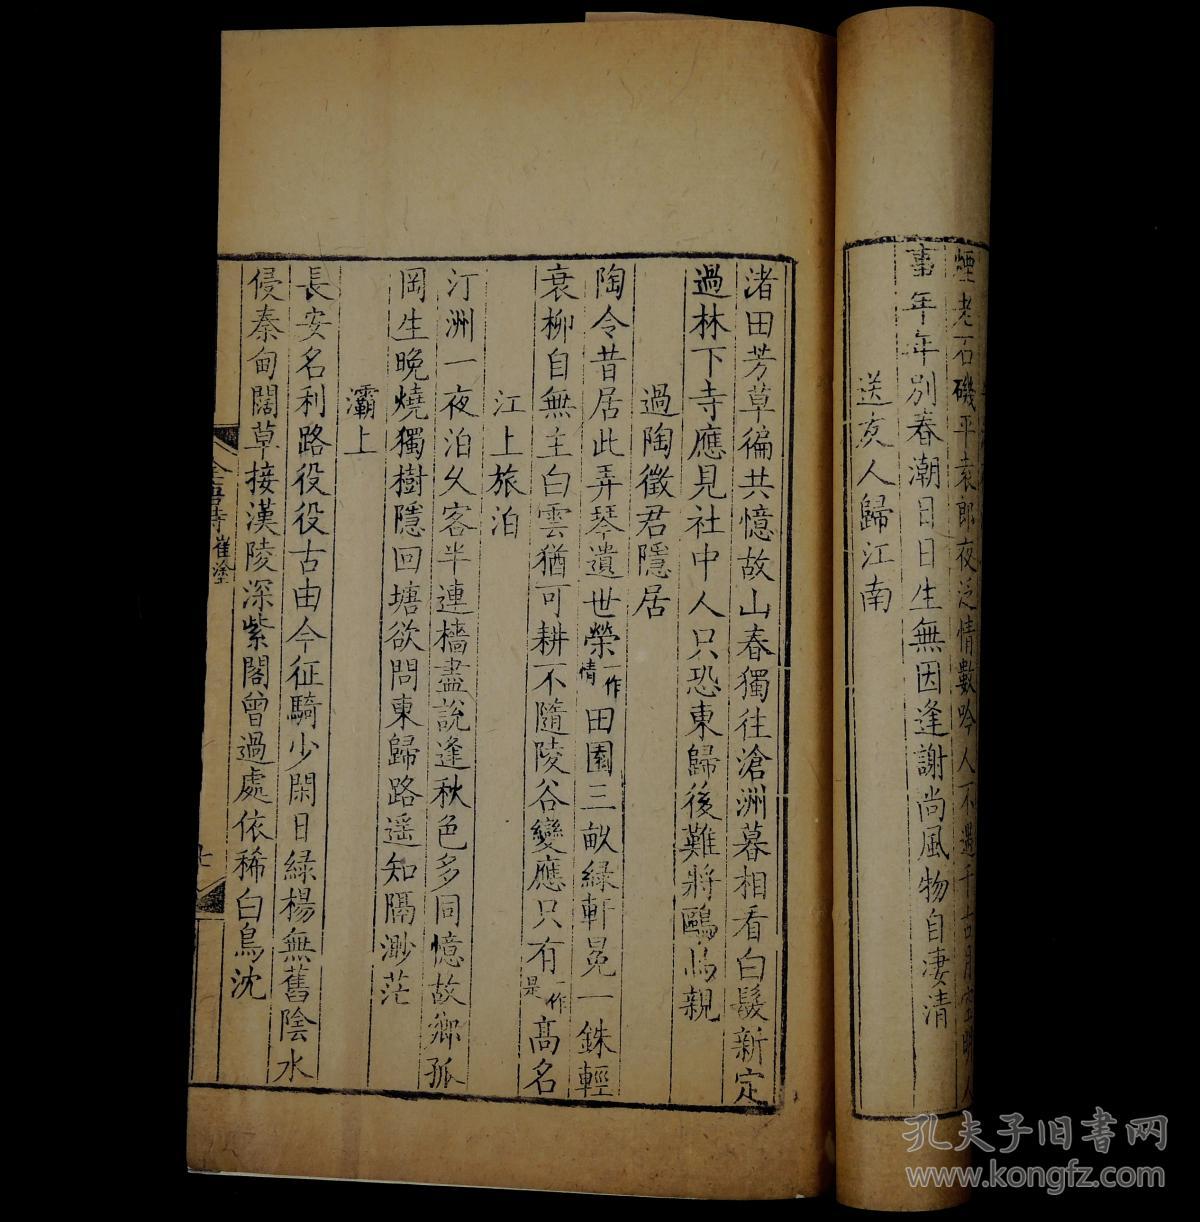 煙老石磯平袁郎夜泛情數吟人不遇千古月空明人
事年年別春潮日日生無因逢謝尚風物自淒清
送友人歸江南
渚田芳草徧共憶故山春獨往滄洲暮相看白髮新定
過林下寺應見社中人只恐東歸後難將鷗鳥親
過陶徵君隱居
陶令昔居此弄琴遺世榮一作情田園三畝綠軒冕一銖輕
衰柳自無主白雲猶可耕不隨陵谷變應只有一作是高名
江上旅泊
汀洲一夜泊久客半連檣盡說逢秋色多同憶故鄉孤
岡生晚燒獨樹隱回塘欲問東歸路遥知隔渺茫
灞上
長安名利路役役古由今征騎少閑日綠楊無舊陰水
侵秦甸闊草接漢陵深紫閣曾過處依稀白鳥沈
全唐詩崔塗
七
孔夫子旧書网
www.kongfz.com